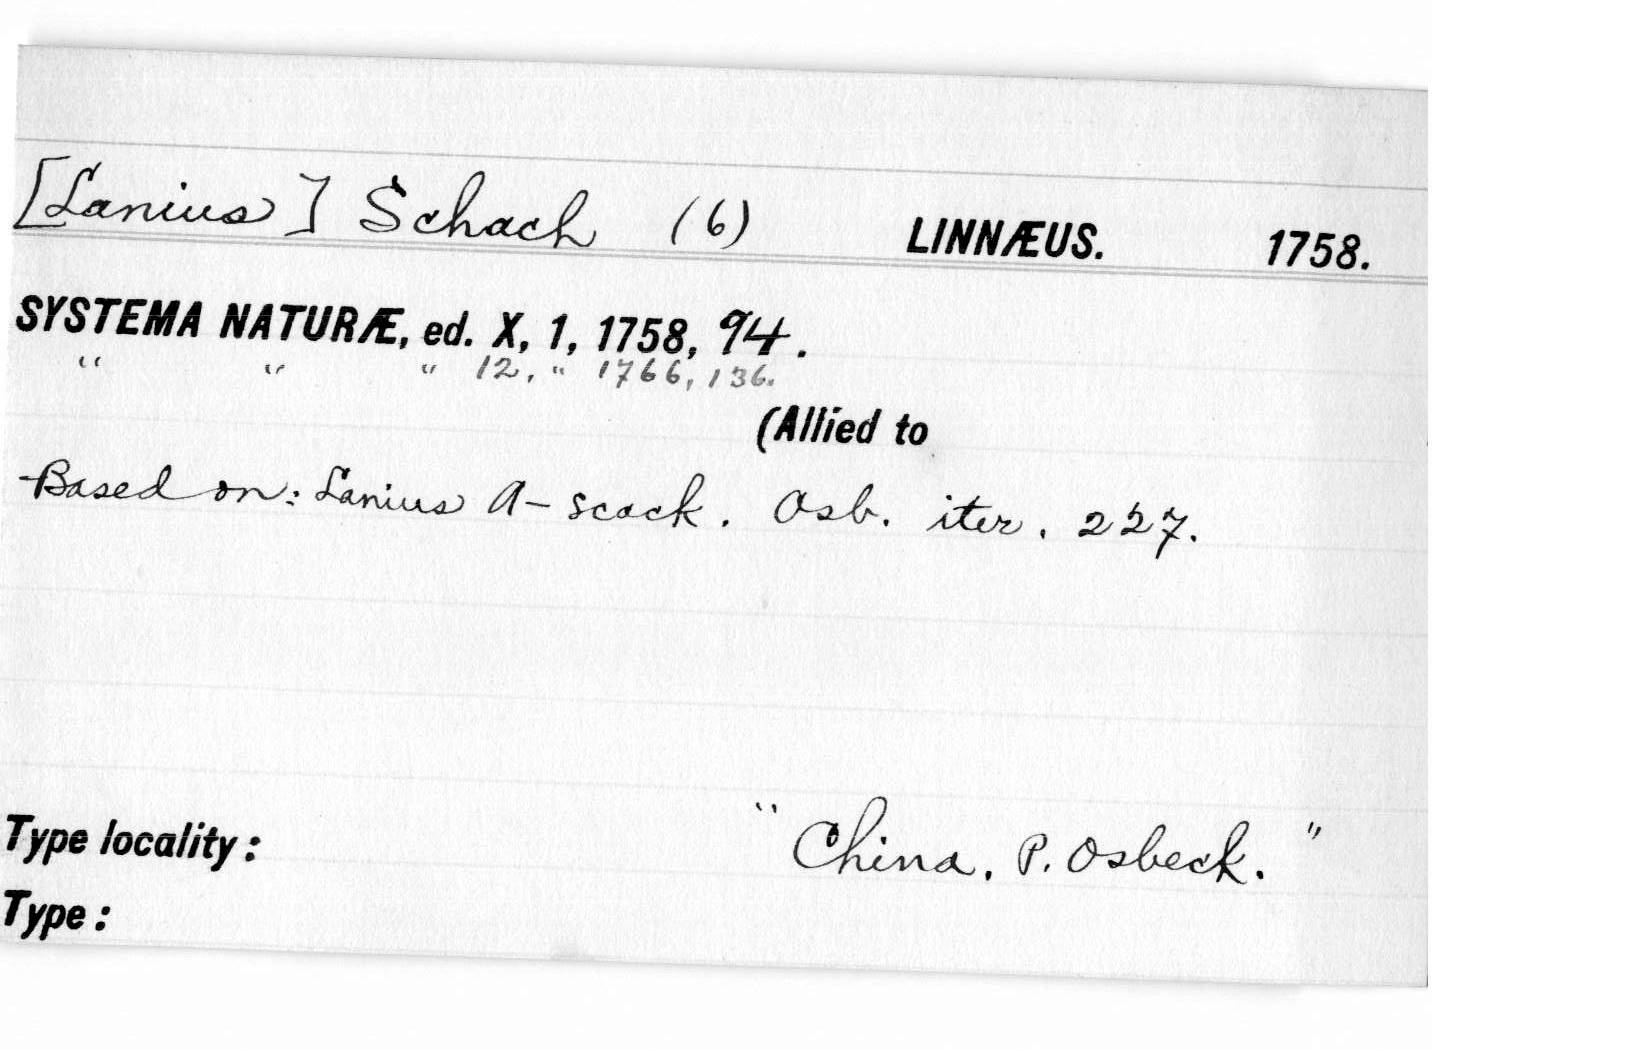 [Lanius] Schach (6) LINNÆUS. 1758.
SYSTEMA NATURÆ, ed. X, 1, 1758, 94.
" " " 12, " 1766, 136.
(Allied to
Based on: Lanius A-scack. Osb. iter. 227.
Type locality: "China. P. Osbeck."
Type: